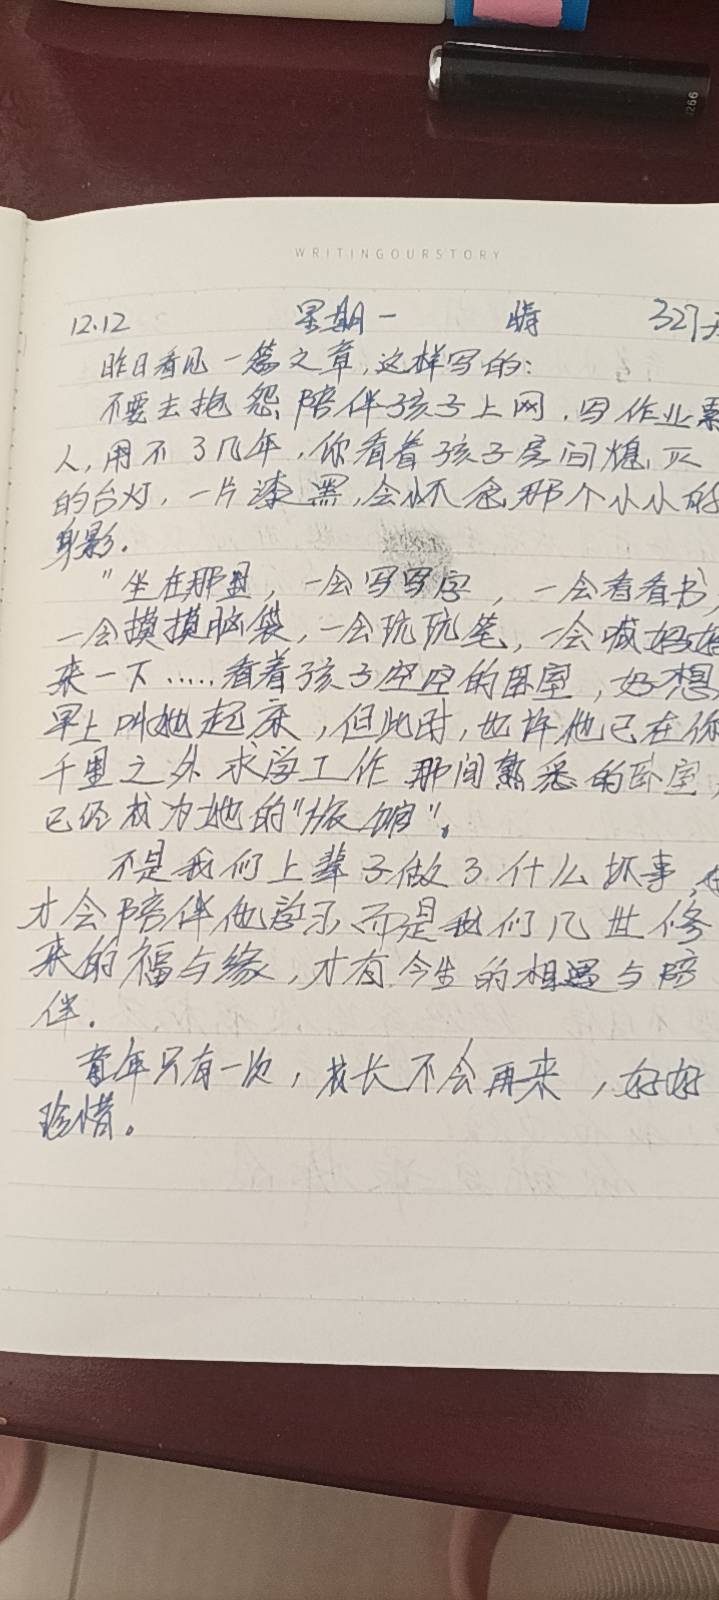 266
WRITINGOURSTORY
12.12 星期一 晴 327天
昨日看见一篇文章,这样写的:
不要去抱怨陪伴孩子上网,写作业累
人,用不了几年,你看着孩子房间熄灭
的台灯,一片漆黑,会怀念那个小小的
身影.
"坐在那里,一会写写字,一会看看书,
一会摸摸脑袋,一会玩玩笔,一会喊妈妈
来一下.....看着孩子空空的卧室,好想
早上叫她起床,但此时,也许他已在你
千里之外求学工作 那间熟悉的卧室,
已经成为她的"旅馆"。
不是我们上辈子做了什么坏事,
才会陪伴他学习,而是我们几世修
来的福与缘,才有今生的相遇与陪
伴.
童年只有一次,成长不会再来,好好
珍惜。